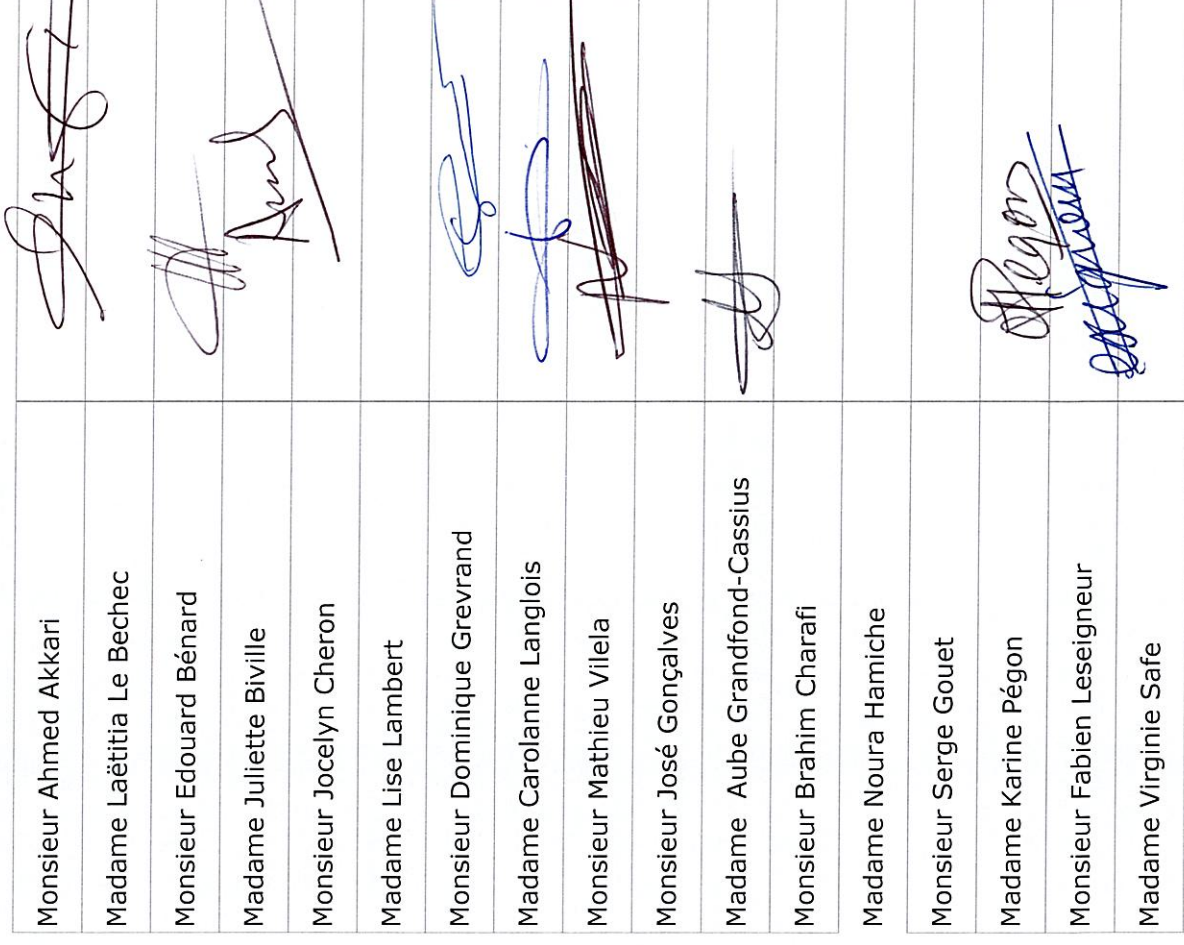 Monsieur Ahmed Akkari
Madame Laëtitia Le Bechec
Monsieur Edouard Bénard
Madame Juliette Biville
Monsieur Jocelyn Cheron
Madame Lise Lambert
Monsieur Dominique Grevrand
Madame Carolanne Langlois
Monsieur Mathieu Vilela
Monsieur José Gonçalves
Madame Aube Grandfond-Cassius
Monsieur Brahim Charafi
Madame Noura Hamiche
Monsieur Serge Gouet
Madame Karine Pégon
Monsieur Fabien Leseigneur
Madame Virginie Safe